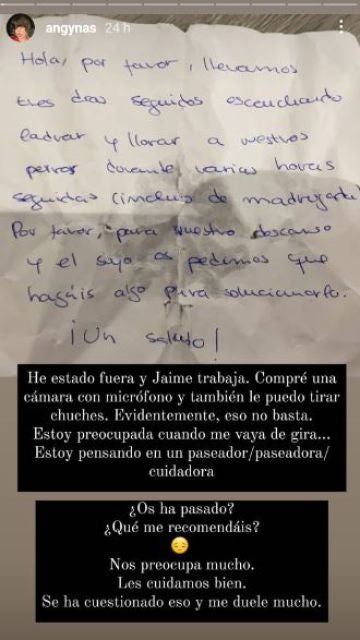 angynas 24 h
Hola, por favor, llevamos
tres días seguidos escuchando
ladrar y llorar a vuestros
perros durante varias horas
seguidas (incluso de madrugada)
Por favor, para nuestro descanso
y el suyo os pedimos que
hagáis algo para solucionarlo.
¡Un saludo!
He estado fuera y Jaime trabaja. Compré una
cámara con micrófono y también le puedo tirar
chuches. Evidentemente, eso no basta.
Estoy preocupada cuando me vaya de gira...
Estoy pensando en un paseador/paseadora/
cuidadora
¿Os ha pasado?
¿Qué me recomendáis?
😔
Nos preocupa mucho.
Les cuidamos bien.
Se ha cuestionado eso y me duele mucho.